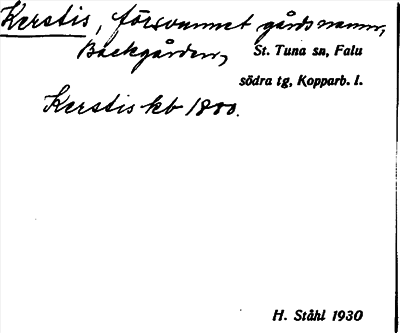 Kerstis, försvunnet gårdsnamn,
Backgården,
St. Tuna sn, Falu
södra tg, Kopparb. l.
Kerstis kb 1800.
H. Ståhl 1930